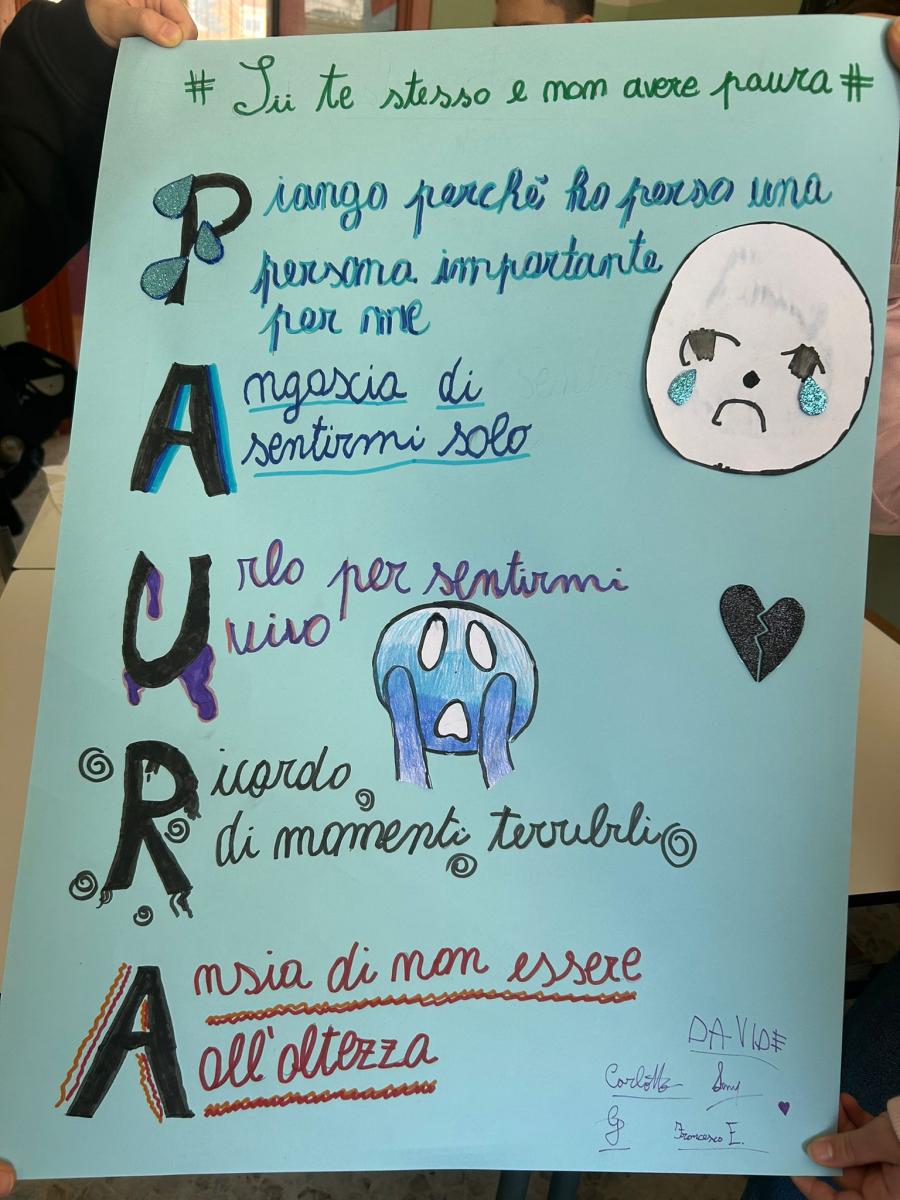 # Sii te stesso e non avere paura #
Piango perchè ho perso una
persona importante
per me
Angoscia di
sentirmi solo
Urlo per sentirmi
vivo
Ricordo
di momenti terribili
Ansia di non essere
all'altezza
DAVIDE
Carlotta
G
Francesco E.